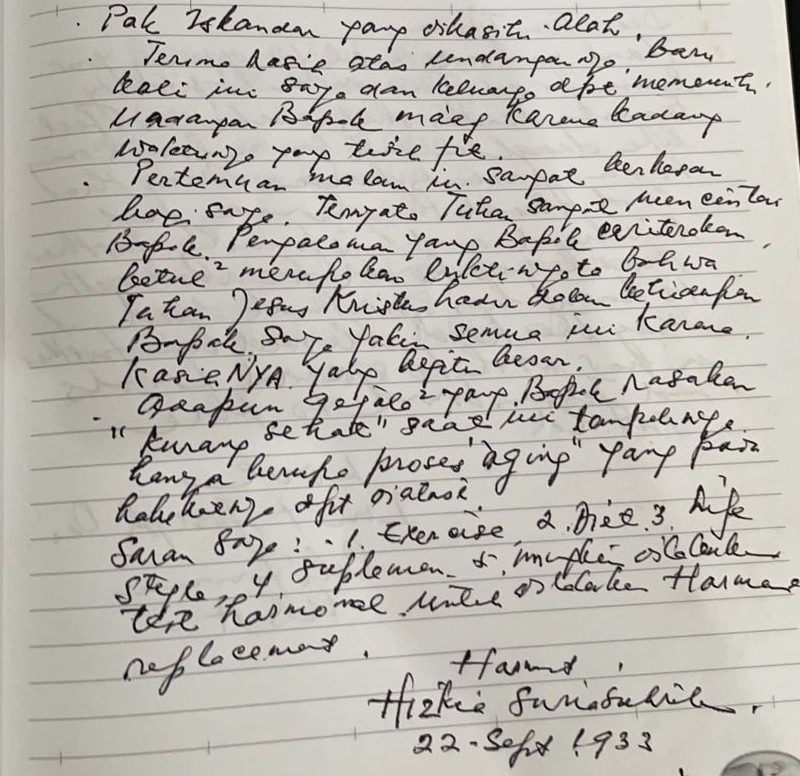 Pak Iskandar yang dikasihi Alah,
Terima kasih atas undangannya, baru
kali ini saya dan keluarga dpt memenuhi
Undangan Bapak maag karena kadang
waktunya yang tidak fit.
Pertemuan malam ini sangat berkesan
bagi saya. Ternyata Tuhan sangat mencintai
Bapak. Pengalaman yang Bapak ceriterakan,
betul² merupakan bukti nyata bahwa
Tuhan Jesus Kristus hadir dalam kehidupan
Bapak. Saya yakin semua ini karena
KasihNYA yang begitu besar.
Adapun gejala² yang Bapak rasakan
"kurang sehat" saat ini tampaknya
hanya berupa proses "aging" yang pada
hakekatnya dpt diatasi.
Saran saya: - 1. Exercise, 2. Diet 3. Life
Style, 4. suplemen 5. mungkin dilakukan
test hormonal untuk dilakukan Hormone
replacement.
Hormat,
Hizkia
22-Sept 1933